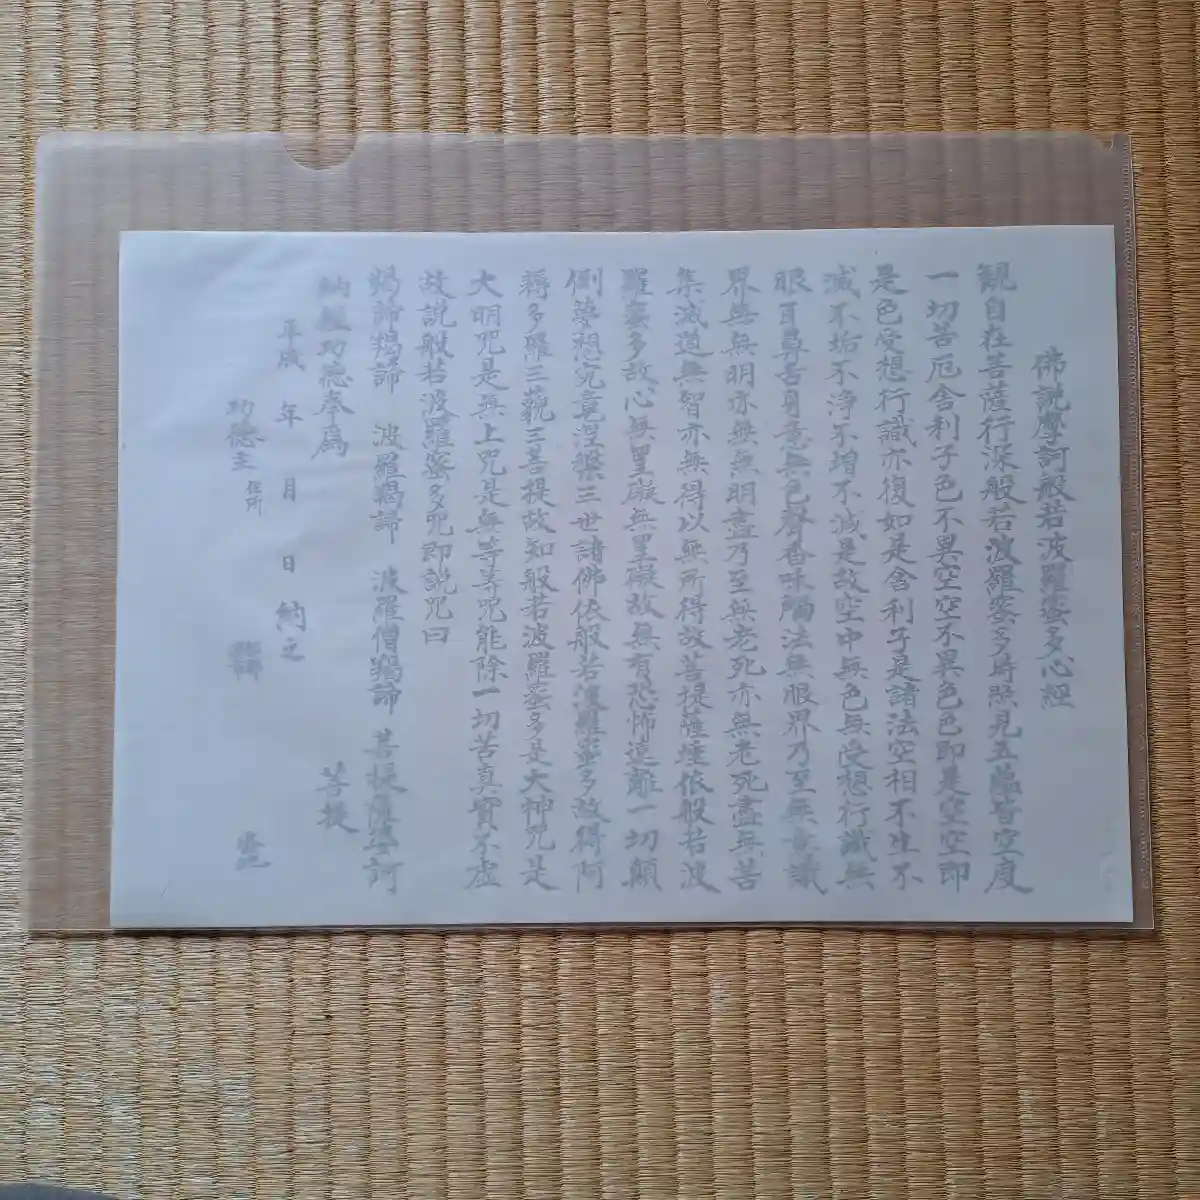 佛説摩訶般若波羅蜜多心經
観自在菩薩行深般若波羅蜜多時照見五蘊皆空度
一切苦厄舎利子色不異空空不異色色即是空空即
是色受想行識亦復如是舎利子是諸法空相不生不
滅不垢不浄不増不減是故空中無色無受想行識無
眼耳鼻舌身意無色聲香味觸法無眼界乃至無意識
界無無明亦無無明盡乃至無老死亦無老死盡無苦
集滅道無智亦無得以無所得故菩提薩埵依般若波
羅蜜多故心無罣礙無罣礙故無有恐怖遠離一切顛
倒夢想究竟涅槃三世諸佛依般若波羅蜜多故得阿
耨多羅三藐三菩提故知般若波羅蜜多是大神咒是
大明咒是無上咒是無等等咒能除一切苦真實不虚
故説般若波羅蜜多咒即説咒曰
羯諦羯諦 波羅羯諦 波羅僧羯諦 菩提薩婆訶
納經功德奉為 菩提
平成 年 月 日 納之
功德主 住所